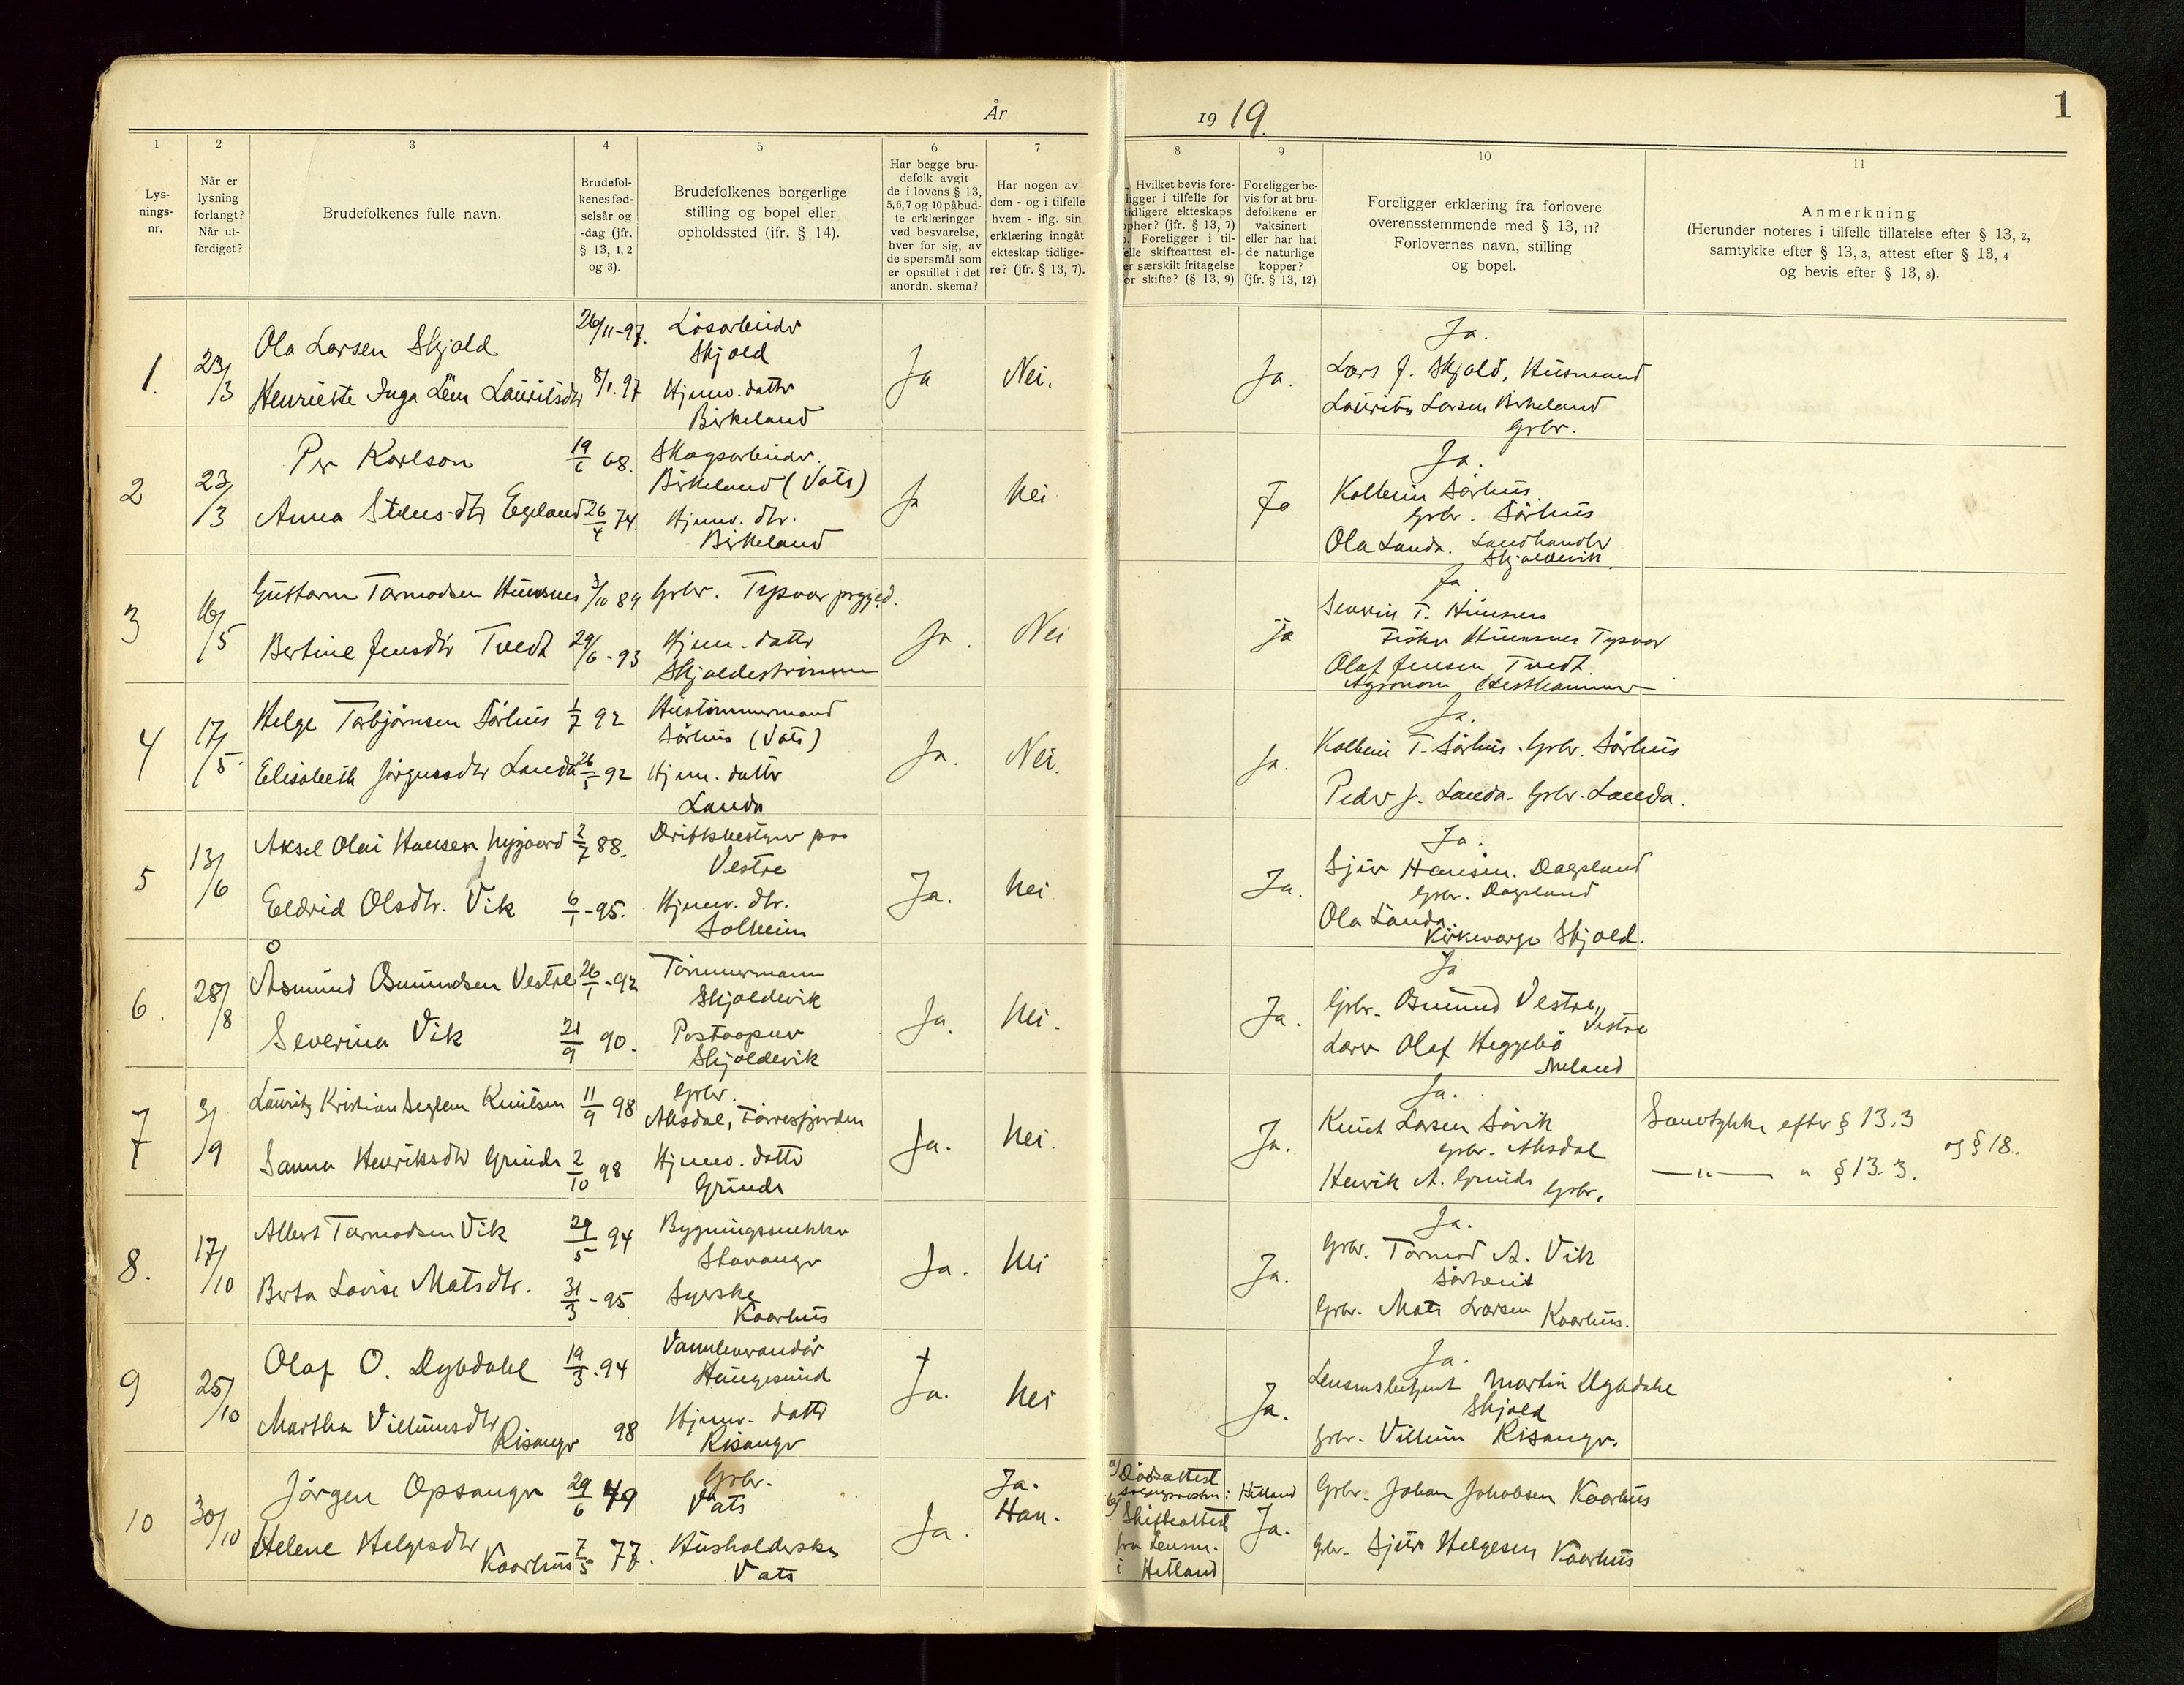 År 1919.
1
1
2
3
4
5
6
7
8
9
10
11
Lys-
nings-
nr.
Når er
lysning
forlangt?
Når ut-
ferdiget?
Brudefolkenes fulle navn.
Brudefol-
kenes fød-
selsår og
-dag (jfr.
§ 13, 1, 2
og 3).
Brudefolkenes borgerlige
stilling og bopel eller
opholdssted (jfr. § 14).
Har begge bru-
defolk avgit
de i lovens § 13,
5, 6, 7 og 10 påbud-
te erklæringer
ved besvarelse,
hver for sig, av
de spørsmål som
er opstillet i det
anordn. skema?
Har nogen av
dem - og i tilfelle
hvem - iflg. sin
erklæring inngåt
ekteskap tidlige-
re? (jfr. § 13, 7).
Hvilket bevis fore-
ligger i tilfelle for
tidligere ekteskaps
ophør? (jfr. § 13, 7)
Foreligger i til-
elle skifteattest el-
er særskilt fritagelse
or skifte? (§ 13, 9)
Foreligger be-
vis for at bru-
defolkene er
vaksinert
eller har hat
de naturlige
kopper?
(jfr. § 13, 12)
Foreligger erklæring fra forlovere
overensstemmende med § 13, 11?
Forlovernes navn, stilling
og bopel.
Anmerkning
(Herunder noteres i tilfelle tillatelse efter § 13, 2,
samtykke efter § 13, 3, attest efter § 13, 4
og bevis efter § 13, 8).
1. 23/3 Ola Larsen Skjold 26/11-97. Løsarbeider
Skjold
Ja Nei. Ja.
Henriette Inga Lauritsdtr 8/1. 97 Hjemv. datter
Birkeland
Ja.
Lars J. Skjold, Husmand
Laurits Larsen Birkeland
Grbr.
2 23/3 Per Karlson 19/6 68. Skogsarbeider.
Birkeland (Vats)
Ja Nei Ja
Anna dtr Egeland 26/4 74. Hjemv. dtr.
Birkeland
Ja.
Kolbein Sørhus
Grbr. Sørhus
Ola Landa. Landhandler
Skjoldevik.
3 16/5 Guttorm Tormodsen 3/10 89 Grbr. Tysvær
Bertine Jensdtr Tvedt 29/6-93 Hjem. datter
Skjoldestrømmen
Ja. Nei Ja
Ja
Severin T.
Fisker Tysvær
Olaf Jensen Tvedt
Agronom Hesthammer
4 17/5. Helge Torbjørnsen Sørhus 1/7 92 Hustømmermand
Sørhus (Vats)
Elisabeth Jørgensdtr Landa 26/5 92 Hjem. datter
Landa
Ja. Nei. Ja.
Ja.
Kolbein T. Sørhus. Grbr. Sørhus
Peder J. Landa. Grbr. Landa.
5 13/6 Aksel Olai Hansen Nygaard 2/7 88. Driftsbestyrer paa
Vestre
Eldrid Olsdtr. Vik 6/1-95. Hjemv. dtr.
Solheim
Ja. Nei Ja.
Ja.
Sjur Hansen. Dagsland
Grbr. Dagsland
Ola Landa.
Kirkeverge Skjold.
6. 28/8 Åsmund Osmundsen Vestre 26/1-92 Tømmermann
Skjoldevik
Severina Vik 21/9 90. Postaapner
Skjoldevik
Ja. Nei. Ja.
Ja
Grbr. Osmund Vestre,
Vestre
Lærer Olaf Heggebø
7 3/9 Lauritz Kristian Knutsen 11/9 98 Grbr.
Aksdal, Førresfjorden
Sanna Henriksdtr Grinde 2/10 98 Hjemv. datter
Grinde
Ja. Nei. Ja.
Ja.
Knut Larsen Sørvik
Grbr. Aksdal
Henrik A. Grinde Grbr.
Samtykke efter § 13.3
og § 18.
— " — " § 13.3.
8. 17/10 Albert Tormodsen Vik 29/5 94 Bygningssnekker
Stavanger
Berta Lovise Matsdtr. 31/3-95 Syerske
Kaarhus
Ja. Nei Ja.
Ja.
Grbr. Tormod A. Vik
Grbr. Mats Larsen Kaarhus.
9 25/10 Olaf O. Dybdahl 19/3.94
Haugesund
Martha Villumsdtr
Risanger 98 Hjemv. datter
Risanger
Ja. Nei Ja.
Ja.
Lensmsbetjent Martin Dybdahl
Skjold
Grbr. Villum Risanger.
10 30/10 Jørgen Opsanger 29/6 49 Grbr.
Vats
Helene Helgesdtr
Kaarhus 7/5 77. Husholderske
Vats
Ja. Ja.
Han.
a) Dødsattest
Hetland
b) Skifteattest
fra Lensm.
i Hetland
Ja.
Grbr. Johan Jakobsen Kaarhus
Grbr. Sjur Helgesen Kaarhus